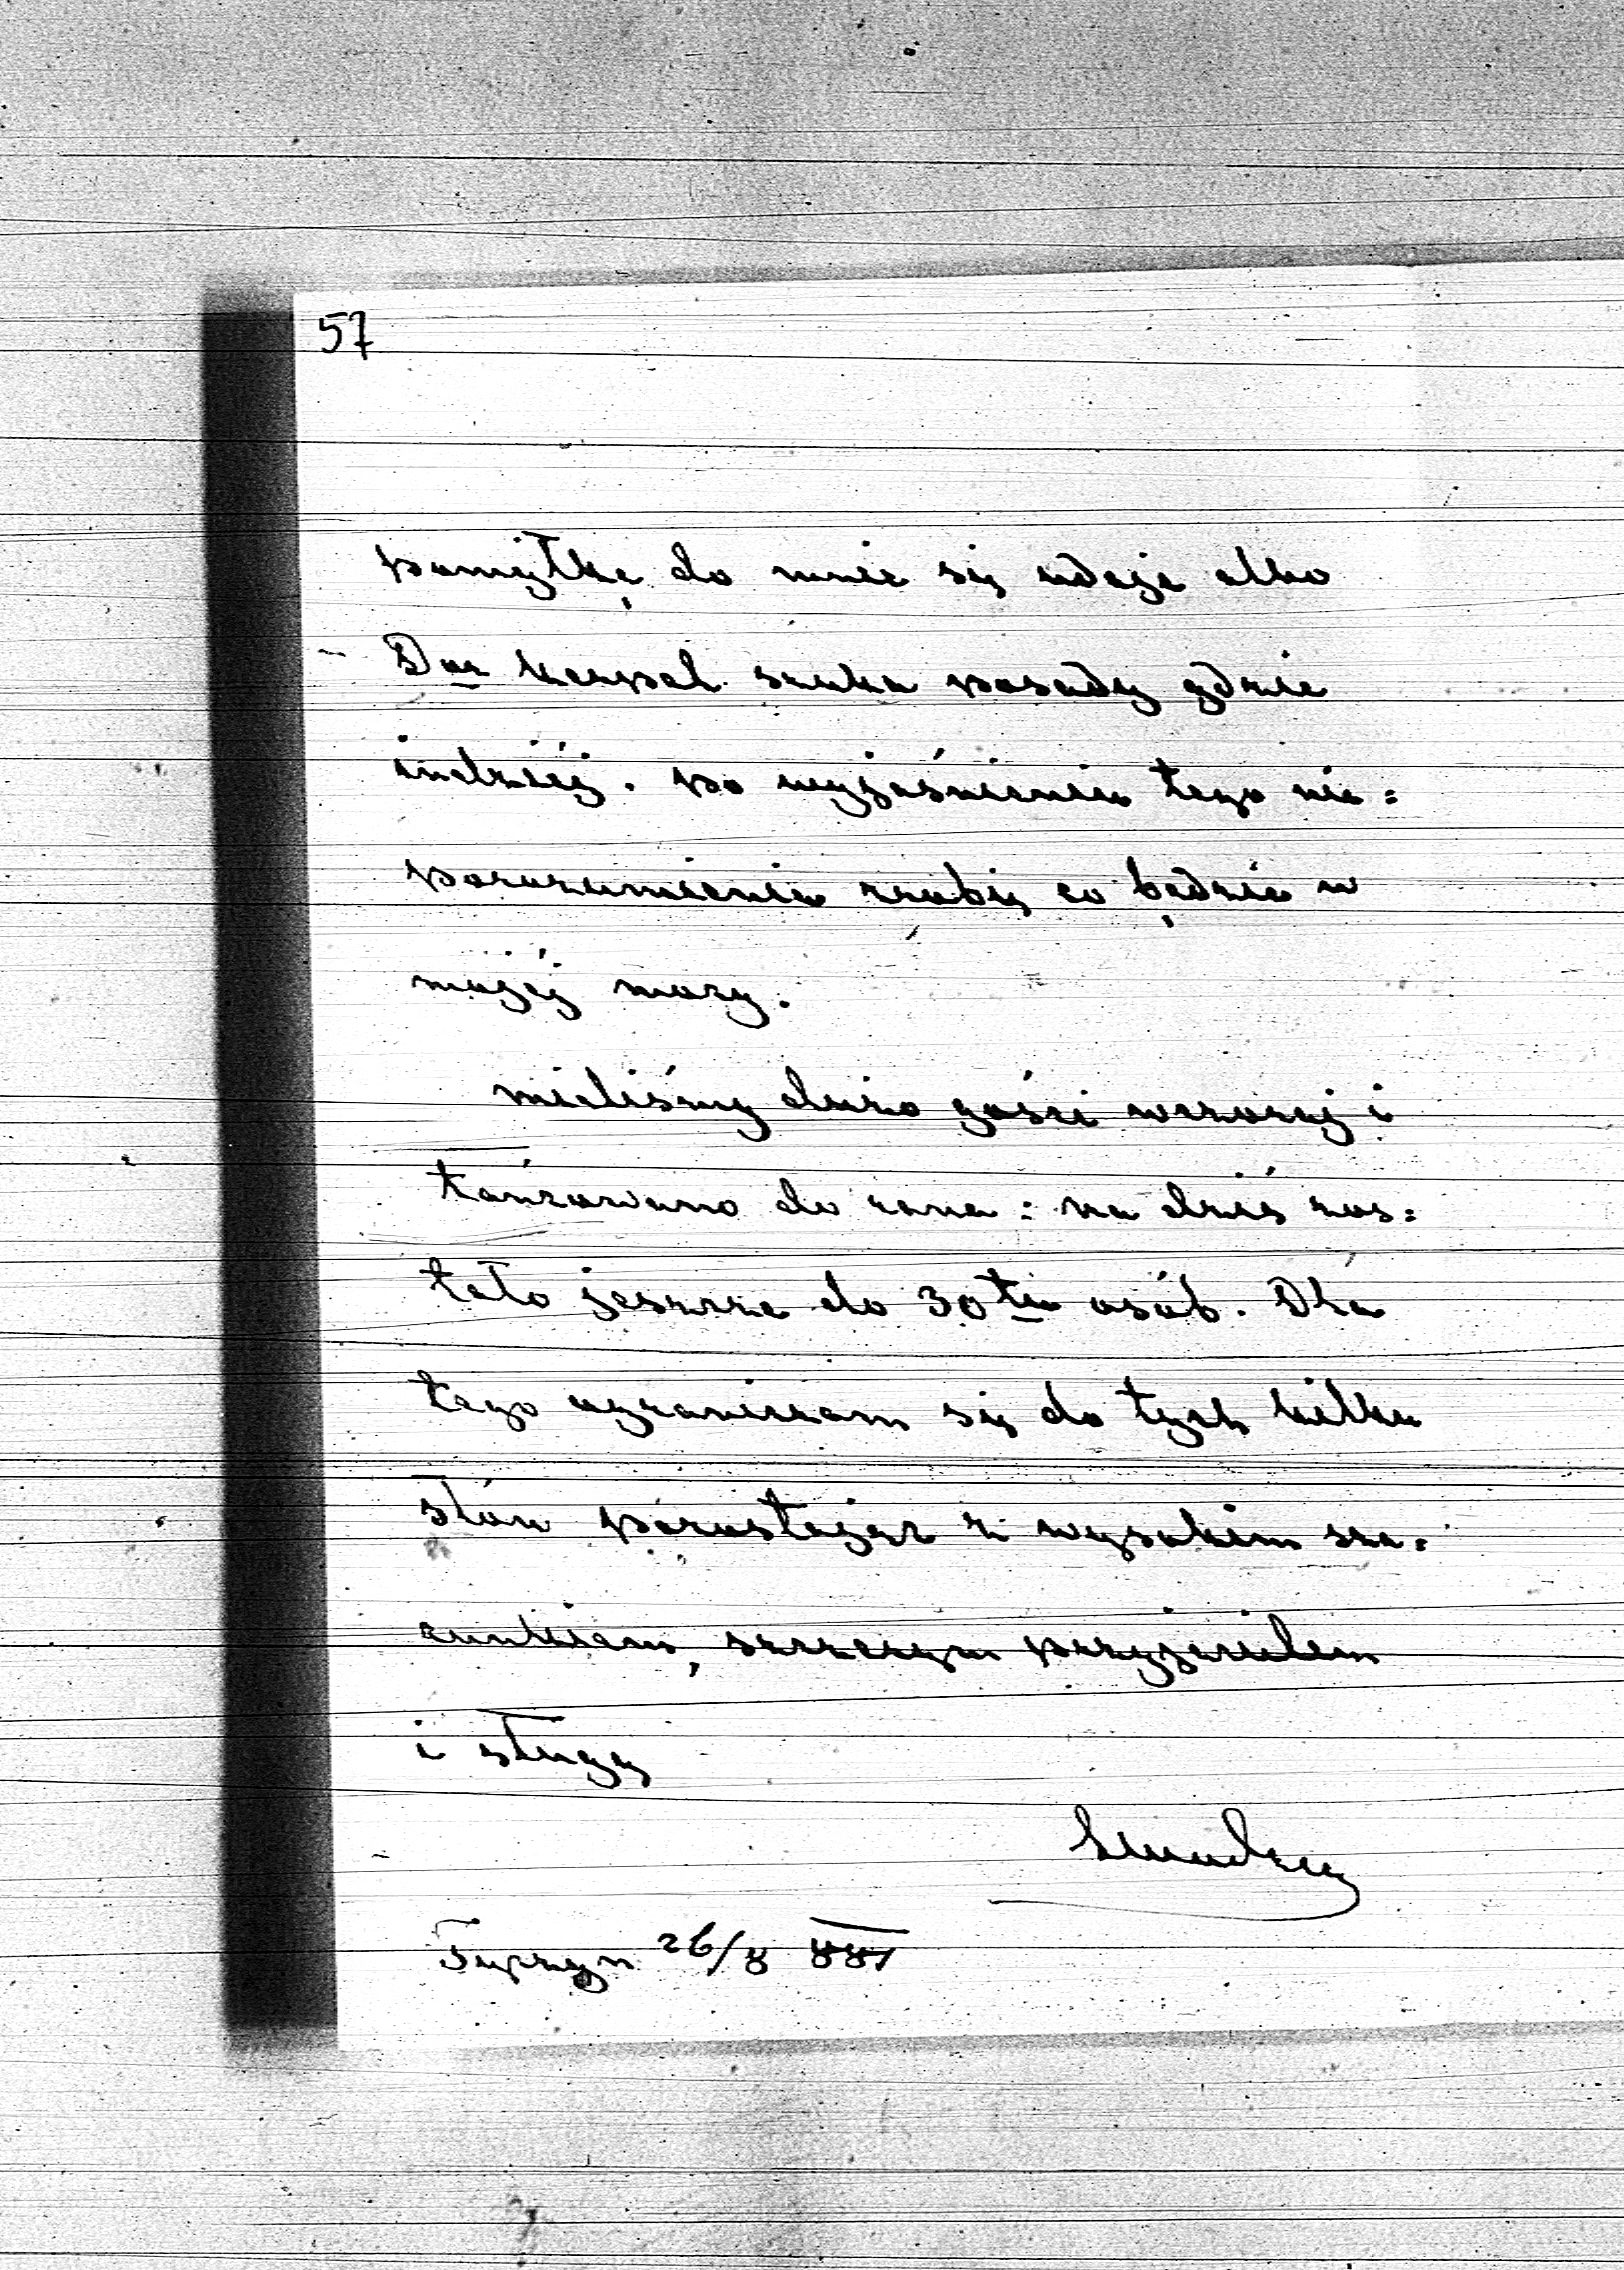 57
pomyłkę do mnie się udaje albo
Dor Karpal. szuka posady gdzie
indziéj. po wyjaśnieniu tego nie=
porozumienia zrobię co będzie w
mojéj mocy.
mieliśmy dużo gości wczoraj i
tańcowano do rana: na dziś zos=
tało jeszcze do 30tu osób. Dla
tego ograniczam się do tych kilku
słów pozostając z wysokim sza=
cunkiem, szczerym przyjacielem
i sługą
26/8 881